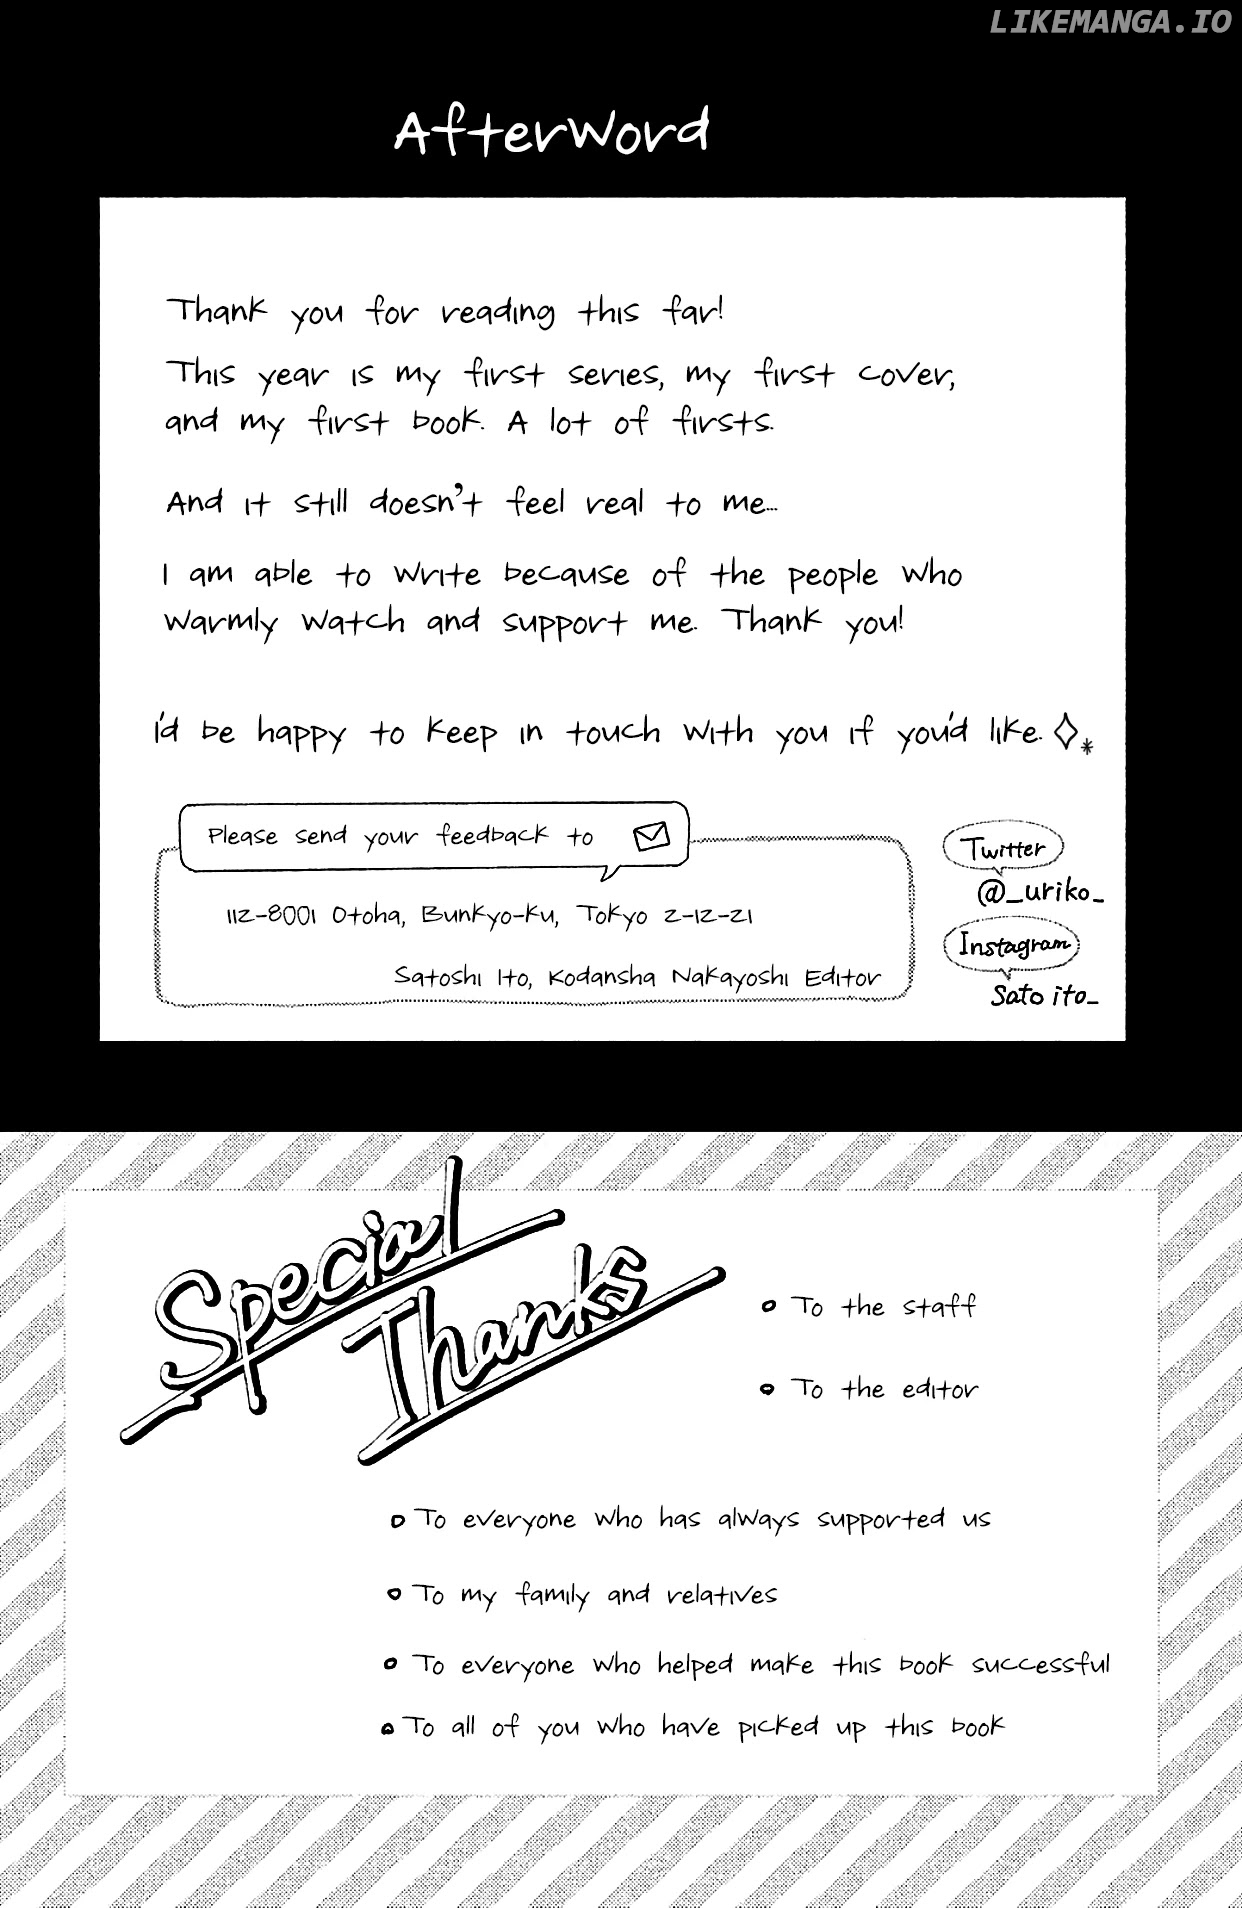 LIKEMANGA.IO
Afterword
Thank you for reading this far!
This year is my first series, my first cover,
and my first book. A lot of firsts.
And it still doesn't feel real to me...
I am able to write because of the people who
warmly watch and support me. Thank you!
I'd be happy to keep in touch with you if you'd like.
Please send your feedback to
112-8001 Otoha, Bunkyo-Ku, Tokyo 2-12-21
Satoshi Ito, Kodansha Nakayoshi Editor
Twitter
@_uriko_
Instagram
Sato ito_
Special
Thanks
To the staff
To the editor
To everyone who has always supported us
To my family and relatives
To everyone who helped make this book successful
To all of you who have picked up this book